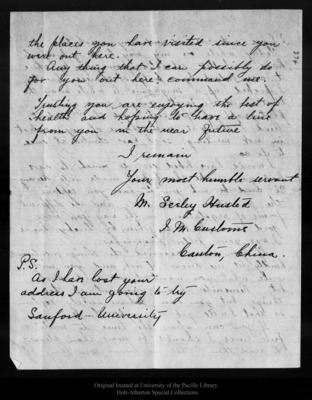 the places you have visited since you
went out here.
Any thing that I can possibly do
for you out here command me.
Trusting you are enjoying the best of
health and hoping to have a line
from you in the near future
I remain
Your most humble servant
M. Serley Husted
I. M. Customs
Canton, China.
P.S.
As I have lost your
address I am going to try
Sanford University
Original located at University of the Pacific Library
Holt-Atherton Special Collections